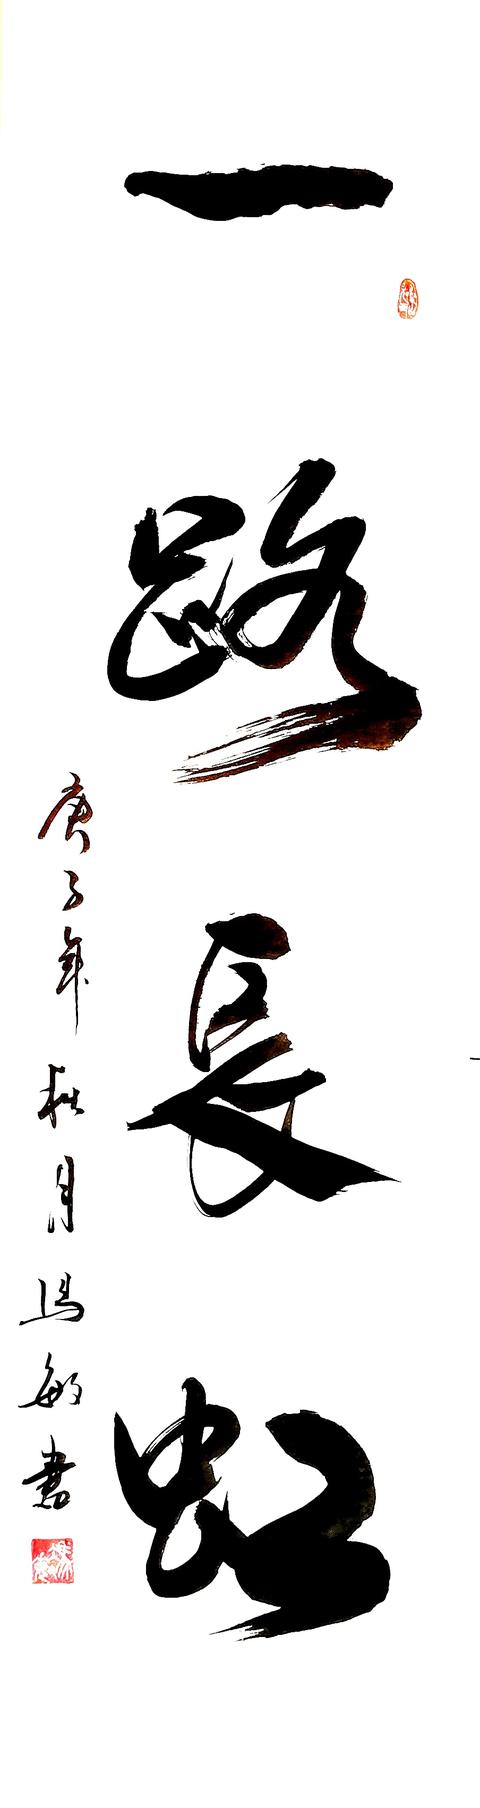 一路長虹
庚子年秋月馮敏書